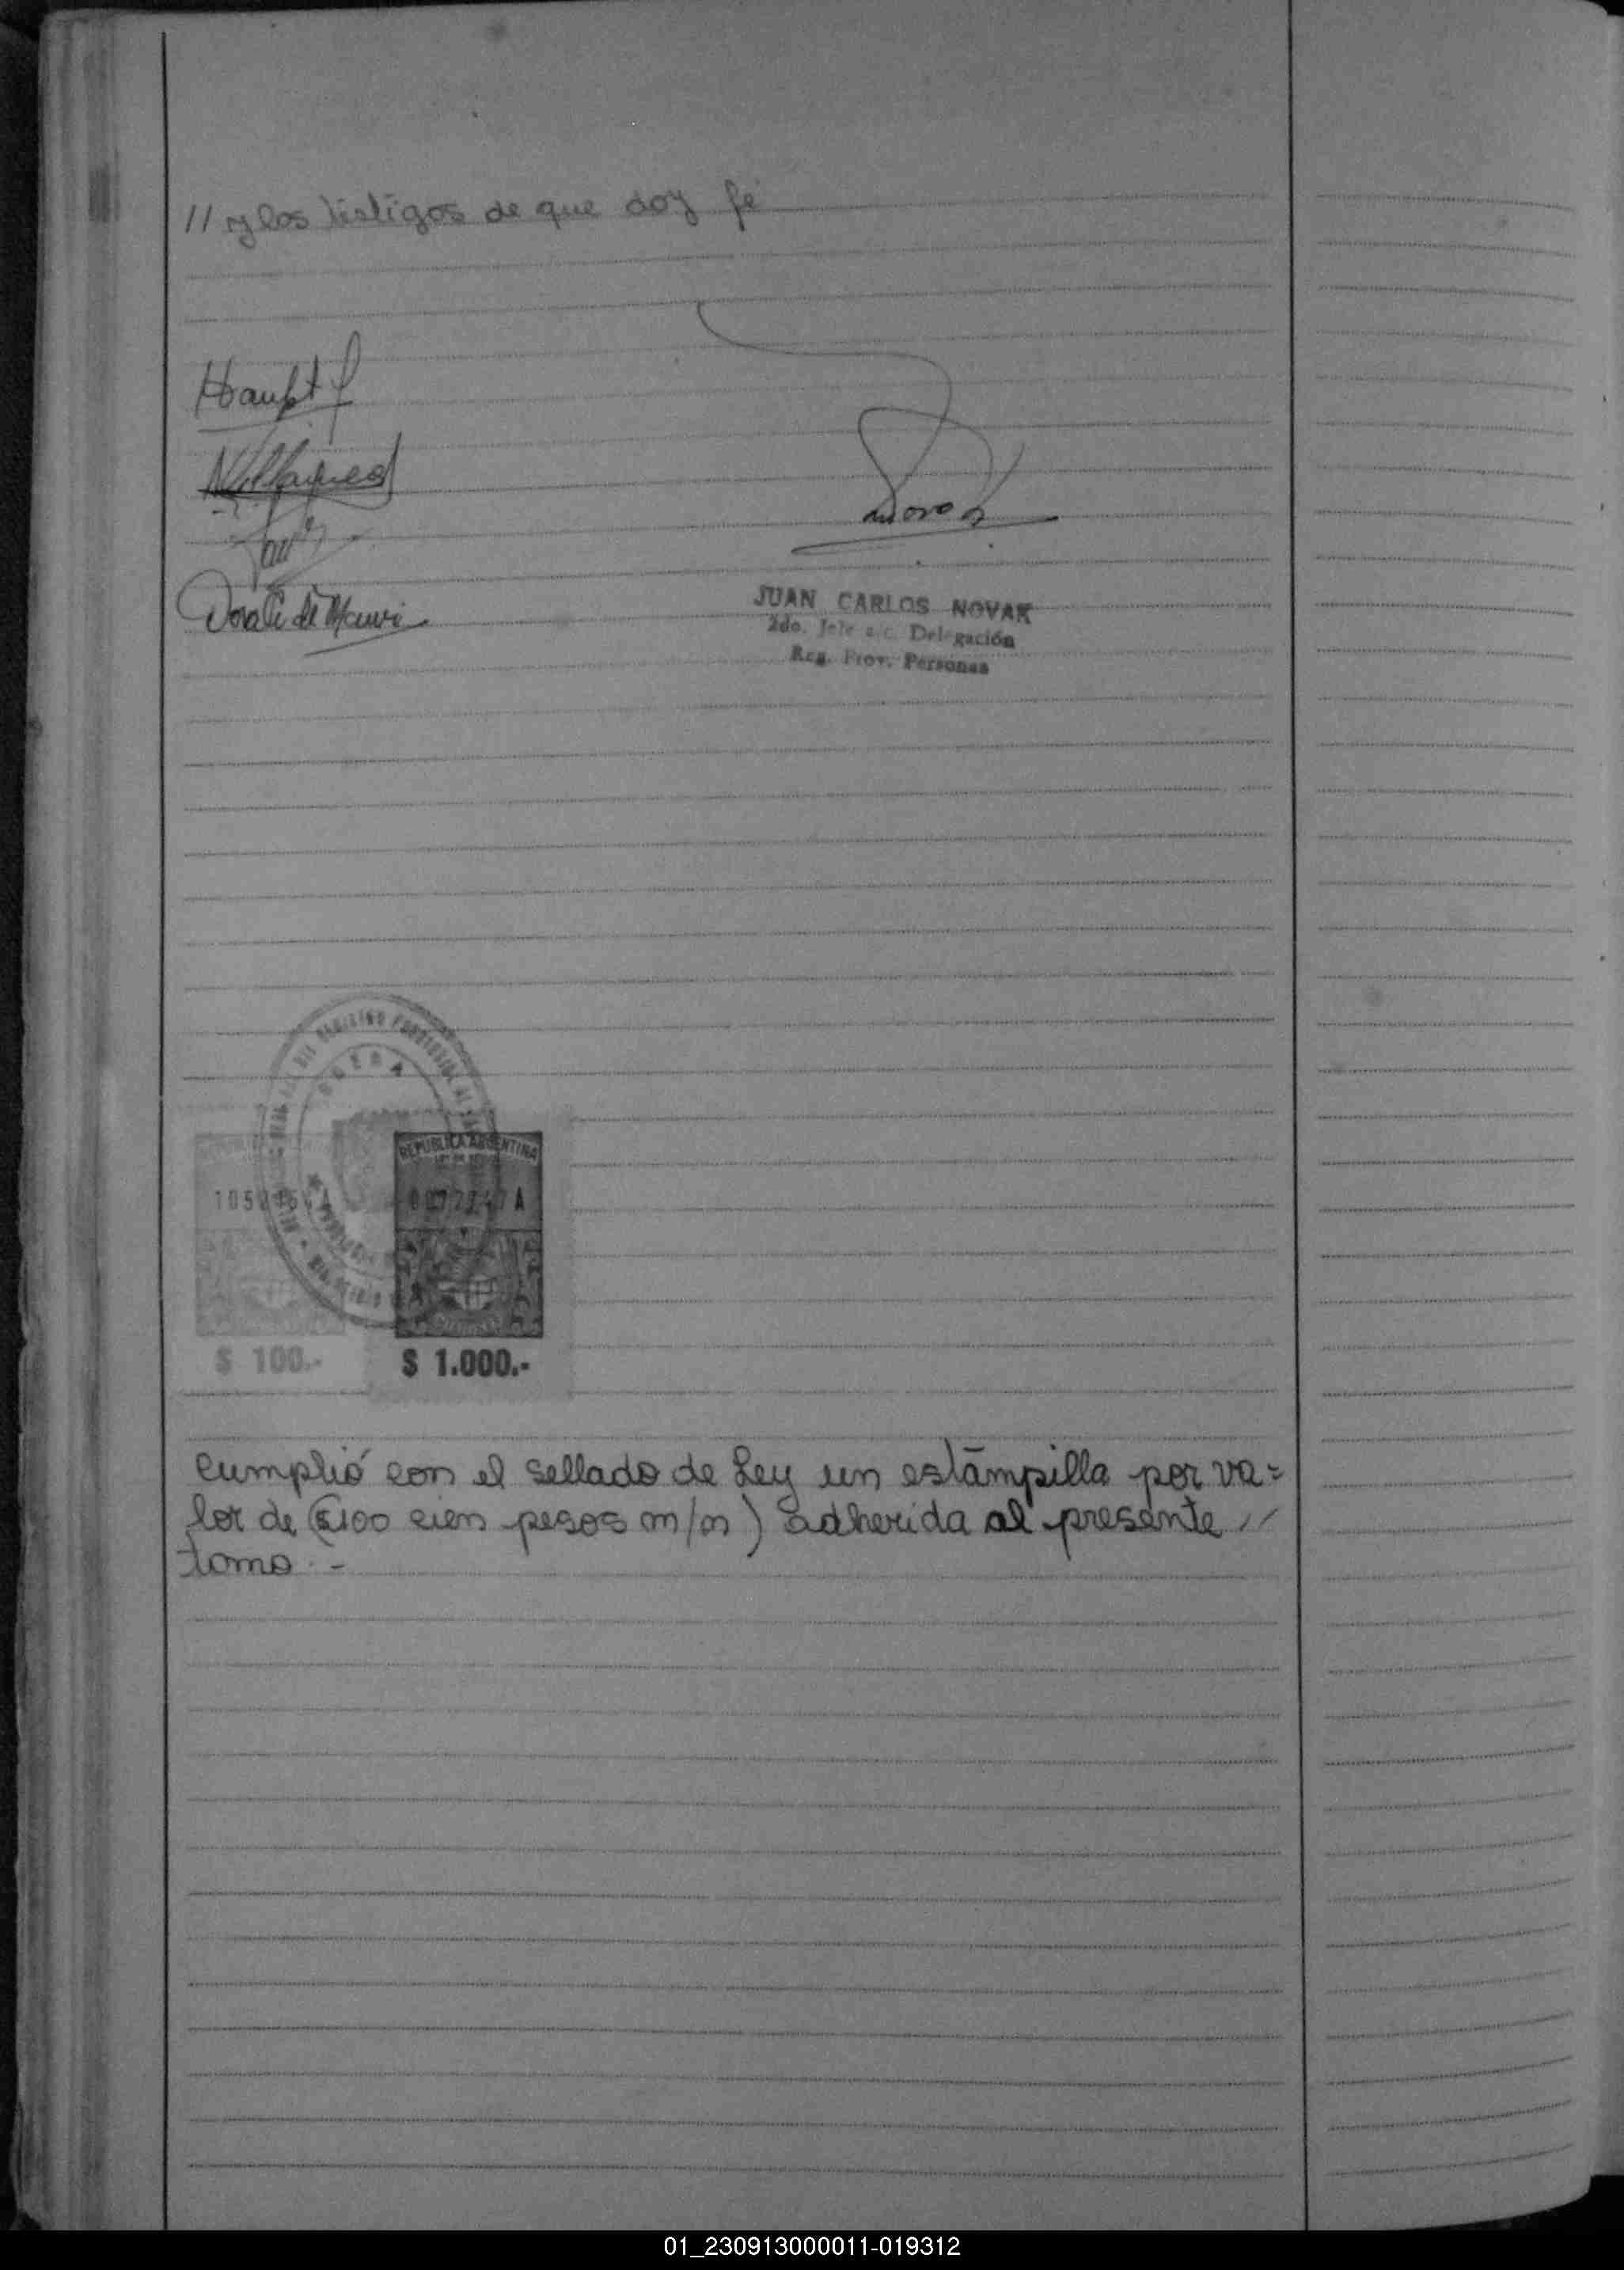 // y los testigos de que doy fe
Haupt
Novak
JUAN CARLOS NOVAK
2do. Jefe a/c. Delegación
Reg. Prov. Personas
REPUBLICA ARGENTINA
$ 100.-
$ 1.000.-
Cumplió con el sellado de Ley un estampilla por va=
lor de ($100 cien pesos m/n) adherida al presente //
tomo. -
01_230913000011-019312